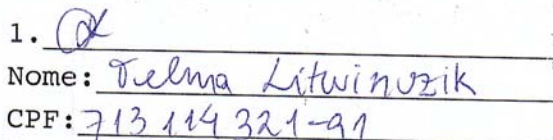 1.
Nome: Telma Litwinuzik
CPF: 713 114 321-91